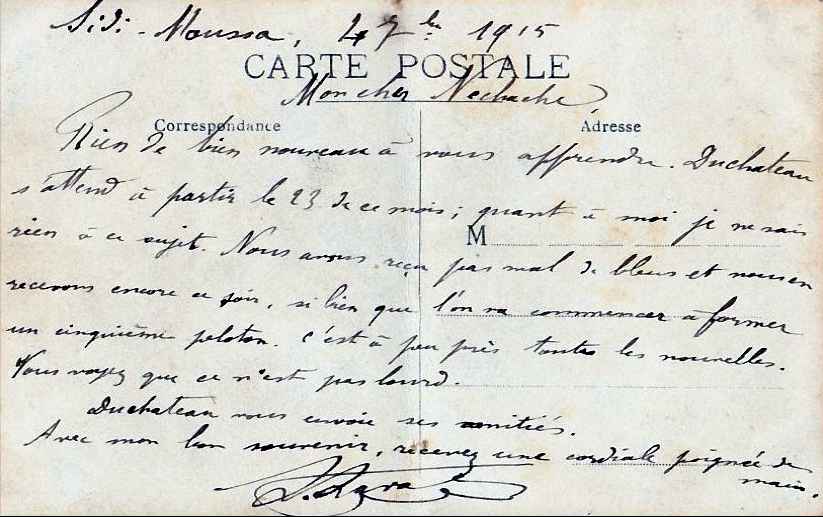 Sidi-Moussa, 4 7bre 1915
CARTE POSTALE
Mon cher Nechache,
Correspondance
Adresse
Rien de bien nouveau à vous apprendre. Duchateau
s'attend à partir le 23 de ce mois; quant à moi je ne sais
M
rien à ce sujet. Nous avons reçu pas mal de bleus et nous en
recevons encore ce soir, si bien que l'on va commencer à former
un cinquième peloton. C'est à peu près toutes les nouvelles.
Vous voyez que ce n'est pas lourd.
Duchateau vous envoie ses amitiés.
Avec mon bon souvenir, recevez une cordiale poignée de
main.